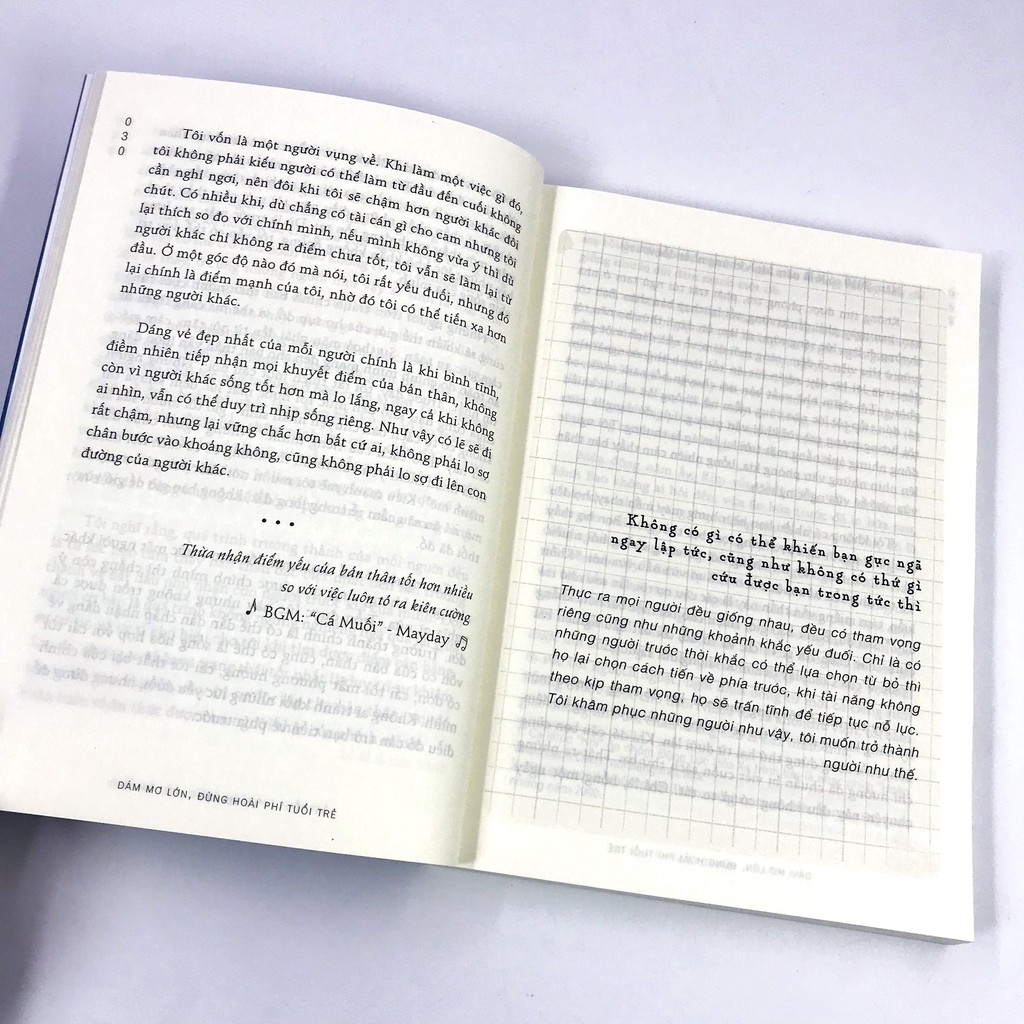 0
3
0
Tôi vốn là một người vụng về. Khi làm một việc gì đó,
tôi không phải kiểu người có thể làm từ đầu đến cuối không
cần nghỉ ngơi, nên đôi khi tôi sẽ chậm hơn người khác đôi
chút. Có nhiều khi, dù chẳng có tài cán gì cho cam nhưng tôi
lại thích so đo với chính mình, nếu mình không vừa ý thì dù
người khác chỉ không ra điểm chưa tốt, tôi vẫn sẽ làm lại từ
đầu. Ở một góc độ nào đó mà nói, tôi rất yếu đuối, nhưng đó
lại chính là điểm mạnh của tôi, nhờ đó tôi có thể tiến xa hơn
những người khác.
Dáng vẻ đẹp nhất của mỗi người chính là khi bình tĩnh,
điềm nhiên tiếp nhận mọi khuyết điểm của bản thân, không
còn vì người khác sống tốt hơn mà lo lắng, ngay cả khi không
ai nhìn, vẫn có thể duy trì nhịp sống riêng. Như vậy có lẽ sẽ đi
rất chậm, nhưng lại vững chắc hơn bất cứ ai, không phải lo sợ
chân bước vào khoảng không, cũng không phải lo sợ đi lên con
đường của người khác.
•••
Thừa nhận điểm yếu của bản thân tốt hơn nhiều
so với việc luôn tỏ ra kiên cường
♪ BGM: “Cá Muối” - Mayday ♫
DÁM MƠ LỚN, ĐỪNG HOÀI PHÍ TUỔI TRẺ
Không có gì có thể khiến bạn gục ngã
ngay lập tức, cũng như không có thứ gì
cứu được bạn trong tức thì
Thực ra mọi người đều giống nhau, đều có tham vọng
riêng cũng như những khoảnh khắc yếu đuối. Chỉ là có
những người trước thời khắc có thể lựa chọn từ bỏ thì
họ lại chọn cách tiến về phía trước, khi tài năng không
theo kịp tham vọng, họ sẽ trấn tĩnh để tiếp tục nỗ lực.
Tôi khâm phục những người như vậy, tôi muốn trở thành
người như thế.